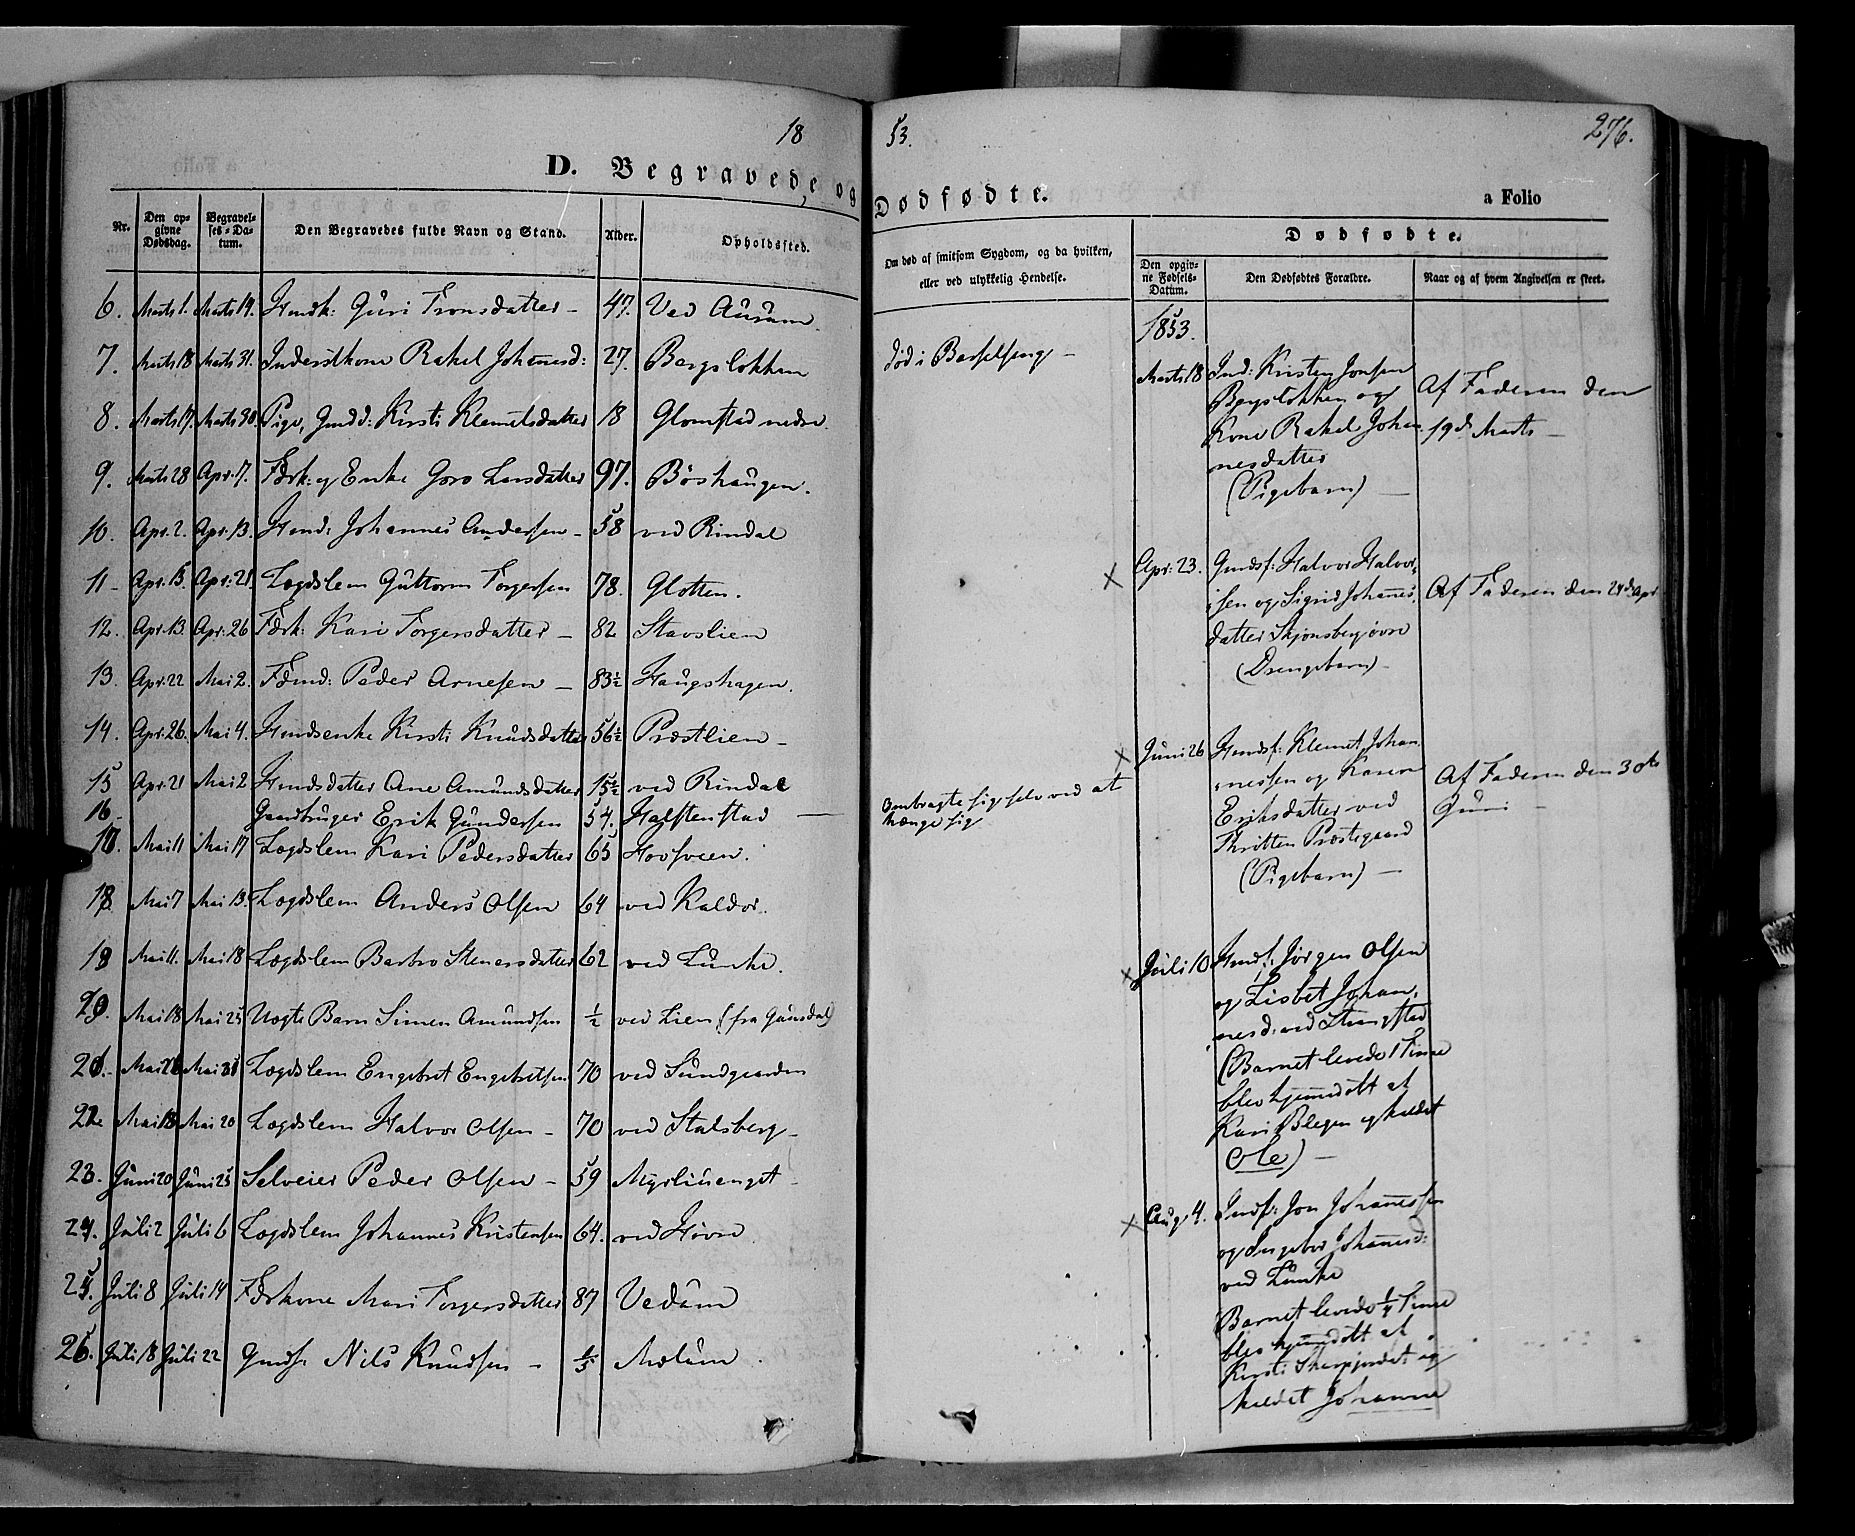 18
53.
276.
D. Begravede, og
Dødfødte.
a Folio
Nr.
Den op-
givne
Dødsdag.
Begravel-
ses-Da-
tum.
Den Begravedes fulde Navn og Stand.
Alder.
Opholdssted.
Om død af smitsom Sygdom, og da hvilken,
eller ved ulykkelig Hendelse.
Dødfødte.
Den opgiv-
ne Fødsels-
Datum.
Den Dødfødtes Forældre.
Naar og af hvem Angivelsen er skeet.
6. Marts 1. Marts 14. Huusk: Guri Tronsdatter - 47. Ved Aurum.
7. Marts 18 Marts 31. Inderstkone Rakel Johannesd: 27. Bergsløkken
8. Marts 17. Marts 30. Pige, Gmdd: Kirsti Klemetsdatter 18 Glomstad nedre.
9. Marts 28 Apr. 7. Fdrk: og Enke Goro Larsdatter 97. Böshaugen.
10. Apr. 2. Apr. 13. Huusm: Johannes Andersen - 58 ved Rindal
11 - Apr. 15. Apr. 21 Lægdslem Guttorm Torgersen 78. Glotten.
12. Apr. 13. Apr. 26 Fdrk: Kari Torgersdatter - 82 Stavslien
13. Apr. 22 Mai 2. Fdmd: Peder Arnesen - 83½ Haugshagen.
14. Apr. 26. Mai 4. Huusmdsenke Kirsti Knudsdatter 56½ Præstlien -
15 Apr. 21 Mai 2 Huusmdsdatter Ane Amundsdatter 15½ ved Rindal
16 Gaardbruger Erik Gundersen 54. Halstenstad
17. Mai 11 Mai 17 Lægdslem Kari Pedersdatter 65 Hovsveen.
18 Mai 7 Mai 13. Lægdslem Anders Olsen 64 ved Kaldor.
19 Mai 11. Mai 18 Lægdslem Barbro Stenersdatter 62 ved Lunke.
20. Mai 18 Mai 25 Uægte Barn Simen Amundsen ½ ved Lien (fra Gausdal)
21. Mai 28 Mai 31 Lægdslem Engebret Engebretsen 70 ved Sundgaarden
22. Mai 13 Mai 20 Lægdslem Halvor Olsen - 70 ved Stalsberg -
23. Juni 20 Juni 25 Selveier Peder Olsen - 59 Myrliuenget -
24. Juli 2 Juli 6 Lægdslem Johannes Kristensen 64. ved Hovre.
25. Juli 8 Juli 14 Fdrkone Mari Torgersdatter 87 Vedum
26. Juli 18 Juli 22 Gmds. Nils Knudsen - 1/5 Mølum.
død i Barselseng -
ombragte sig selv ved at
hænge sig
1853.
Marts 18 Ind: Kristen Jonsen
Bergsløkken og
Kone Rakel Johan-
nesdatter
(Pigebarn) -
Af Faderen den
19de Marts -
x Apr. 23. Gmdsf: Halvor Halvor-
sen og Sigrid Johannes-
datter Skjønsberg øvre
(Drengebarn) -
Af Faderen den 24de Apr.
x Juni 26 Hmdsf: Klemet Johan-
nessen og Karen
Eriksdatter ved
Thritten Præstegaard
(Pigebarn) -
Af Faderen den 30te
Juni -
x Juli 10 Hmdsf: Jörgen Olsen
og Lisbet Johan-
nesd. ved Strangstad
(Barnet levede 1 Time
blev hjemmedøbt af
Kari Blegen og kaldet
Ole) -
x Aug. 4. Indsf: Jon Johannessen
og Ingebor Johannesd:
ved Lunke
Barnet levede ¼ Time
blev hjemmedøbt af
Kirsti Skarpjordet og
kaldet Johanne